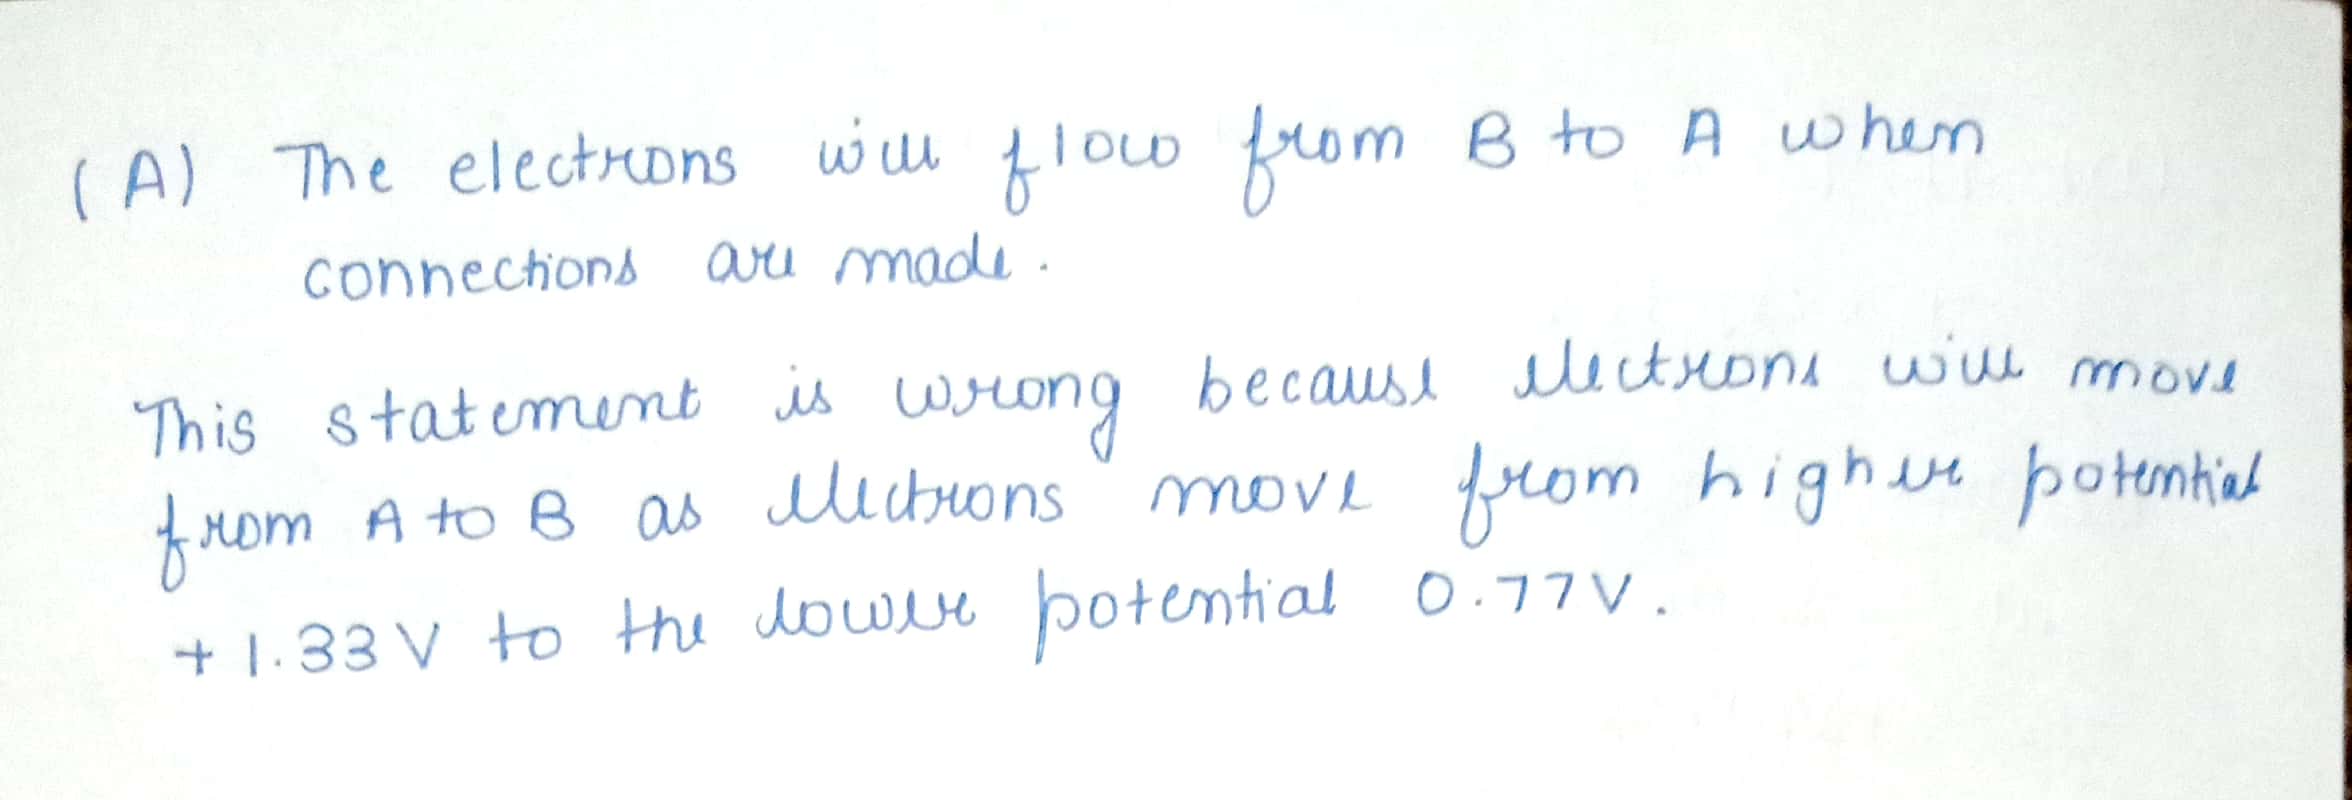 (A) The electrons will flow from B to A when
connections are made.
This statement is wrong because electrons will move
from A to B as electrons move from higher potential
+1.33 V to the lower potential 0.77V.